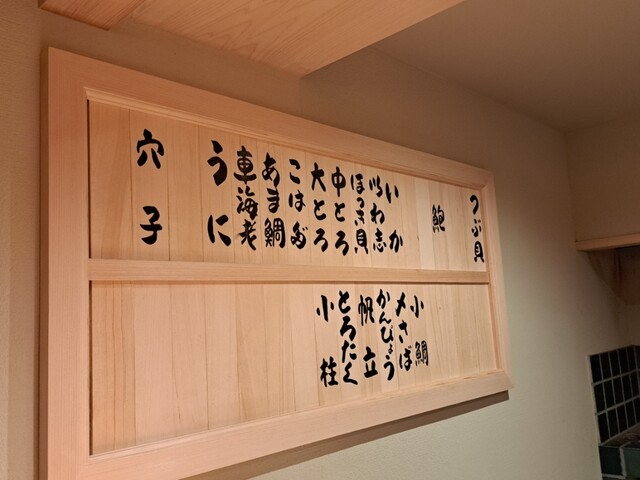 つぶ貝
鮑
いか
いわ志
ほっき貝
中とろ
大とろ
こはだ
あま鯛
車海老
うに
穴子
小鯛
〆さば
かんぴょう
帆立
とろたく
小柱